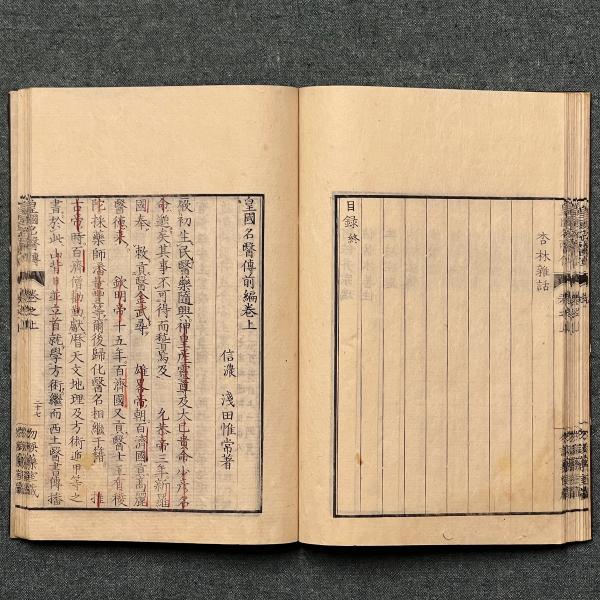 杏林雜話
目録終
皇國名醫傳前編卷上
信濃 淺田惟常著
厥初生民醫藥隨興神皇產靈尊及大已貴命少彥名
命逖矣其事不可得而稽焉及 允恭帝三年新羅
國奉 敕貢醫金武尋 雄畧帝朝百濟國貢高麗
醫德來 欽明帝十五年百濟國又貢醫士王有㥄
陀採藥師潘量豐等爾後歸化醫名相繼于籍 推
古帝時百濟僧觀勒獻曆天文地理及方術遁甲等之
書於此山背日並立首就學方術繼而西土醫書傳播
皇國名醫傳
卷之上
二十七
勿誤藥室藏